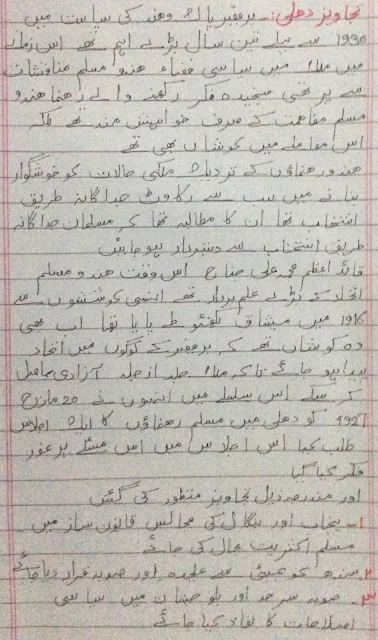 تجاویز دھلی:۔ برصغیر پاک وھند کی سیاست میں
1930 سے پہلے تین سال بڑے اہم تھے اس زمانے
میں ملک میں سیاسی فضاء ھندو مسلم مناقشات
سے پر تھی سنجیدہ فکر رکھنے والے رھنما ھندو
مسلم مفاھمت کے صرف خواہش مند تھے بلکہ
اس معاملے میں کوشاں بھی تھے
ھندو رھنماؤں کے نزدیک ملکی حالات کو خوشگوار
بنانے میں سب سے رکاوٹ جداگانہ طریق
انتخاب تھا ان کا مطالبہ تھا کہ مسلمان جداگانہ
طریق انتخاب سے دستبردار ہو جائیں
قائد اعظم محمد علی جناح اس وقت ھندو مسلم
اتحاد کے بڑے علم بردار تھے انہی کوششوں سے
1916 میں میثاق لکھنؤ طے پایا تھا اب بھی
وہ کوشاں تھے کہ برصغیر کے لوگوں میں اتحاد
پیدا ہو جائے تاکہ ملک جلد از جلد آزادی حاصل
کر سکے اس سلسلے میں انہوں نے 20 مارچ
1927 کو دھلی میں مسلم رھنماؤں کا ایک اجلاس
طلب کیا اس اجلاس میں اس مسئلے پر غور
فکر کیا گیا
اور مندرجہ ذیل تجاویز منظور کی گئیں
۱۔ پنجاب اور بنگال کی مجالس قانون ساز میں
مسلم اکثریت بحال کی جائے
۲۔ سندھ کو بمبئی سے علیحدہ اور صوبہ قرار دیا جائے
۳۔ صوبہ سرحد اور بلوچستان میں سیاسی
اصلاحات کا نفاذ کیا جائے